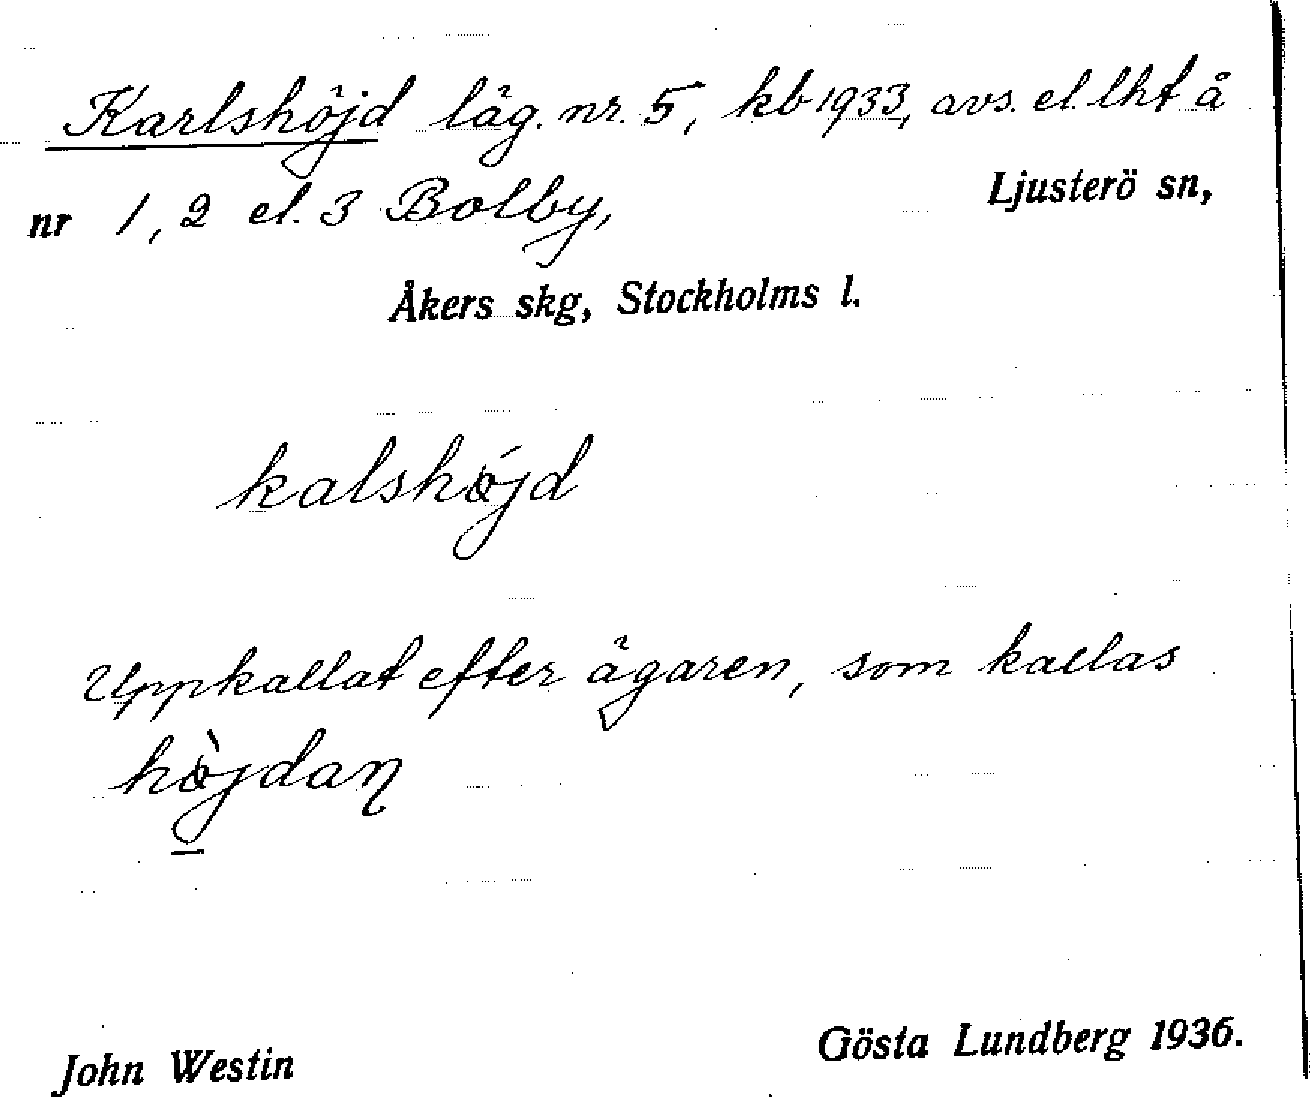 Karlshöjd läg. nr. 5, kb 1933, avs. el. lht å
nr 1, 2 el. 3 Bolby, Ljusterö sn,
Åkers skg, Stockholms l.
kalshǿjd
Uppkallat efter ägaren, som kallas
hø̀jdaŋ
John Westin Gösta Lundberg 1936.